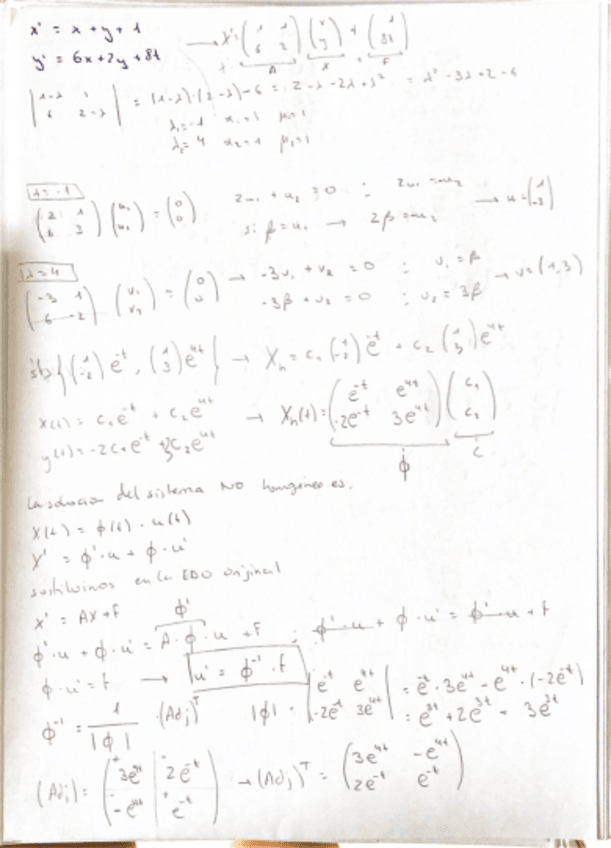 x' = x + y + 1 → X' = (1 1 / 6 2) (x / y) + (1 / 8t)
y' = 6x + 2y + 8t A X F
|1-λ 1 / 6 2-λ| = (1-λ)·(2-λ) - 6 = 2 - λ - 2λ + λ² = λ² - 3λ + 2 - 6
λ₁ = -1 α₁ = 1 μ₁ = 1
λ₂ = 4 α₂ = 1 μ₂ = 1
λ = -1
(2 1 / 6 3) (u₁ / u₂) = (0 / 0) 2u₁ + u₂ = 0 : 2u₁ = -u₂ → u = (1 / -2)
si β = u₁ → 2β = -u₂
λ = 4
(-3 1 / 6 -2) (v₁ / v₂) = (0 / 0) → -3v₁ + v₂ = 0 : v₁ = β → v = (1, 3)
-3β + v₂ = 0 : v₂ = 3β
{(1 / -2) e^-t, (1 / 3) e^4t} → X_h = c₁ (1 / -2) e^-t + c₂ (1 / 3) e^4t
x(t) = c₁e^-t + c₂e^4t → X_h(t) = (e^-t e^4t / -2e^-t 3e^4t) (c₁ / c₂)
y(t) = -2c₁e^-t + 3c₂e^4t ϕ c
La solucion del sistema NO homgéneo es.
X(t) = ϕ(t) · u(t)
X' = ϕ'·u + ϕ·u'
sustituimos en la EDO original
X' = AX + F ϕ'
ϕ'·u + ϕ·u' = A·ϕ·u + F ; ϕ'·u + ϕ·u' = ϕ'·u + F
ϕ·u' = f → u' = ϕ^-1 · f
ϕ^-1 = 1/|ϕ| · (Adj)^T |ϕ| = |e^-t e^4t / -2e^-t 3e^4t| = e^-t · 3e^4t - e^4t · (-2e^-t)
= e^3t + 2e^3t = 3e^3t
(Adj) = (3e^4t 2e^-t / -e^4t e^-t) → (Adj)^T = (3e^4t -e^4t / 2e^-t e^-t)